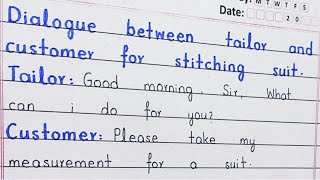 M T W T F S
Date: 2 0
Dialogue between tailor and
customer for stitching suit.
Tailor: Good morning, Sir, What
can i do for you?
Customer: Please take my
measurement for a suit.